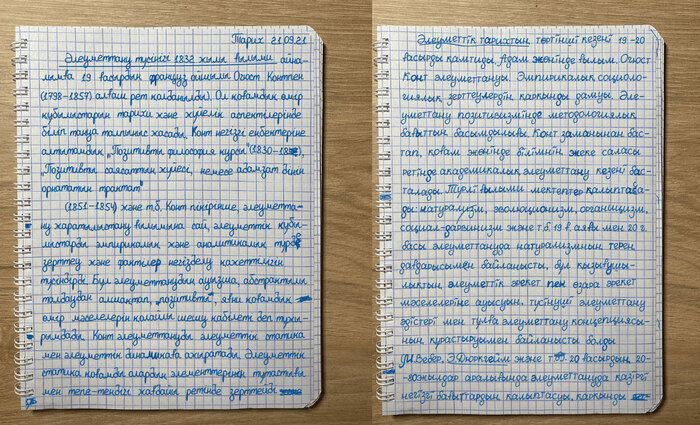 Тарих 21.09.21
Әлеуметтану түсінігі 1832 жылы ғылыми айна-
лымға 19 ғасырдың француз ойшылы Огюст Контпен
(1798-1857) алғаш рет қолданылды. Ол қоғамдық өмір
құбылыстарын тарихи және жүйелік аспектілерінде
біліп тануға талпыныс жасады. Конт негізгі еңбектеріне
алты томдық „Позитивті философия курсы" (1830-
„Позитивті саясаттың жүйесі, немесе адамзат дінін
орнататын трактат"
(1851-1854) және т.б. Конт пікірінше, әлеуметта-
ну жаратылыстану ғылымына сай, әлеуметтік құбы-
лыстарды эмпирикалық және аналитикалық түрде
зерттеу және фактілер негізделу қажеттілігін
түсіндірді. Бұл әлеуметтанудың ауызша, абстрактілі
талдаудан алшақтап, „позитивті", яғни қоғамдық
өмір мәселелерін қалайша шешу қабілеті деп тұжы-
рымдады. Конт әлеуметтануды әлеуметтік статика
мен әлеуметтік динамикаға ажыратады. Әлеуметтік
статика қоғамды олардың элементтерінің тұтастығы
мен тепе-теңдігі жағдайы ретінде зерттейді
Әлеуметтік тарихтың төртінші кезеңі 19-20
ғасырды қамтиды. Адам жөнінде ғылым. Огюст
Конт әлеуметтануы. Эмпирикалық социоло-
гиялық зерттеулердің қарқынды дамуы. Әле-
уметтану позитивизмінде методологиялық
бағыттың басымдылығы. Конт заманынан бас-
тап, қоғам жөнінде білімнің жеке саласы
ретінде академиялық әлеуметтану кезеңі бас-
талады. Түрлі ғылыми мектептер қалыптаса-
ды: натурализм, эволюционизм, органицизм,
социал-дарвинизм және т.б. 19 ғ. аяғы мен 20 ғ.
басы әлеуметтануда натурализмнің терең
дағдарысымен байланысты, бұл қызығушы-
лықтың әлеуметтік әрекет пен өзара әрекет
мәселелеріне ауысуын, түсінуші әлеуметтану
әдістері мен тұлға әлеуметтану концепциясы-
ның құрастырылуымен байланысты болды
(М.Вебер, Э.Дюркгейм және т.б. 20 ғасырдың 20-
жылдар аралығында әлеуметтануда қазіргі
негізгі бағыттардың қалыптасуы, қарқынды